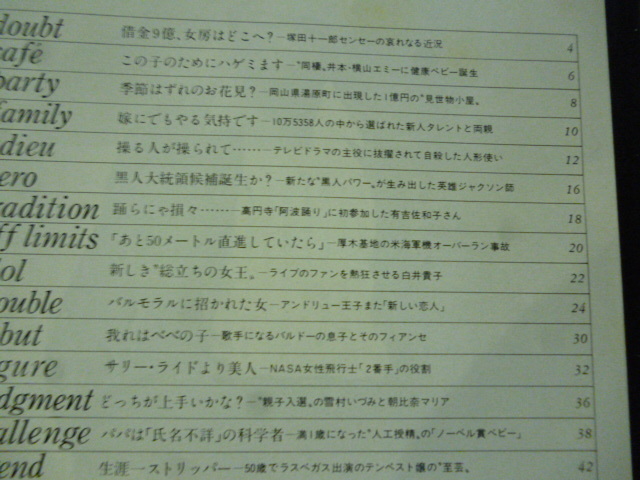 doubt 借金9億、女房はどこへ?—塚田十一郎センセーの哀れなる近況 4
café この子のためにハゲミます—"同棲。井本・横山エミーに健康ベビー誕生 6
party 季節はずれのお花見?—岡山県湯原町に出現した1億円の"見世物小屋。 8
family 嫁にでもやる気持です—10万5358人の中から選ばれた新人タレントと両親 10
dieu 操る人が操られて……—テレビドラマの主役に抜擢されて自殺した人形使い 12
ero 黒人大統領候補誕生か?—新たな"黒人パワー。が生み出した英雄ジャクソン師 16
radition 踊らにゃ損々……—高円寺「阿波踊り」に初参加した有吉佐和子さん 18
ff limits 「あと50メートル直進していたら」—厚木基地の米海軍機オーバーラン事故 20
ol 新しき"総立ちの女王。—ライブのファンを熱狂させる白井貴子 22
ouble バルモラルに招かれた女—アンドリュー王子また「新しい恋人」 24
but 我れはベベの子—歌手になるバルドーの息子とそのフィアンセ 30
gure サリー・ライドより美人—NASA女性飛行士「2番手」の役割 32
dgment どっちが上手いかな?—"親子入選。の雪村いづみと朝比奈マリア 36
allenge パパは「氏名不詳」の科学者—満1歳になった"人工授精。の「ノーベル賞ベビー」 38
end 生涯一ストリッパー—50歳でラスベガス出演のテンペスト嬢の"至芸。 42